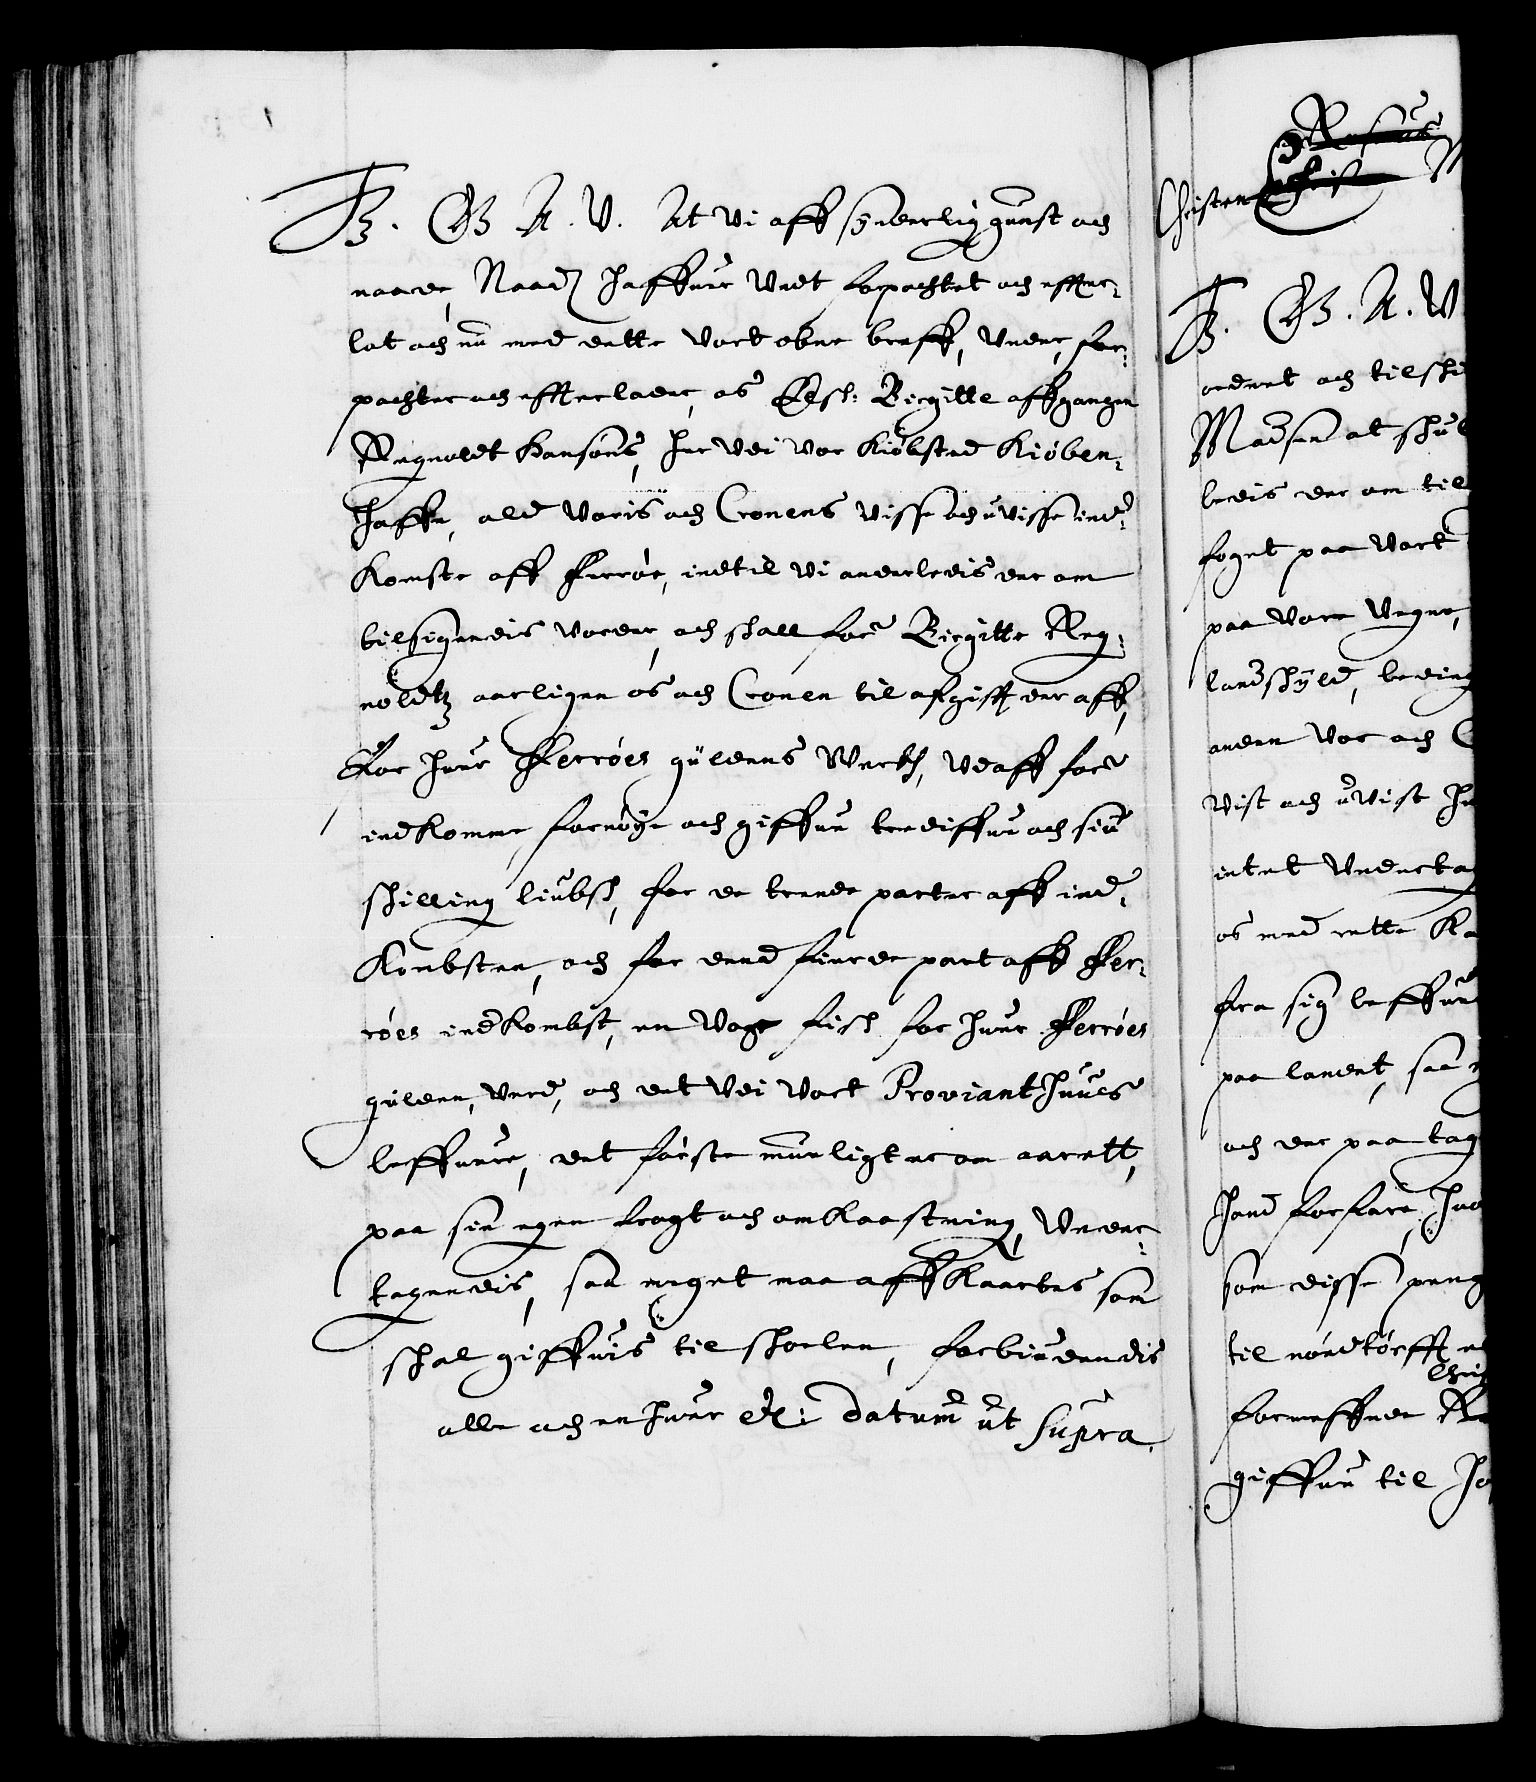 F3. G A. V. At vi aff synderlig gunst och
naade, Naad haffuer Undt forpachtet och effter-
lat och nu med dette Vort obne breff, Under, for-
pachter och effterlader, os Elsk: Birgitte affgangen
Regnoldt Hansøns, her Ved vor Kiöbsted Kiöben-
haffn, ald Voris och Cronens Visse och uVisse ind-
Komste aff Ferröe, indtil Vi anderledis der om
tilsigendis Vorder, och skall for: Birgitte Reg-
noldtz aarligen os och Cronen til afgifft der aff,
For huer Ferröes gyldens Verdj, Vdaff for:
indkomme, fornöge och giffue trediffue och siu
skilling liubsk, for de trende parter aff ind-
Kombsten, och for dend fierde part aff Fer-
röes indkombst, en Voge fisk for huer Ferröes
gylden, Verd, och det Ved Vort Proviant huus
leffuere, det förste mueligt er om aarett,
paa sin egen fragt och omkaastning, Under-
tagendis, saa meget maa affkaartes som
skal giffuis til skolen, forbiudendis
alle och en huer Et: datum ut supra.
Christen
F3. G. A. V
ordnet och tilski
Madsen at skul
ledis der om til
foget paa Vort
paa Vore Vegne,
landskyld,
anden Vor och C
Vist och uVist
intet Undertag
os med rette
fra sig leffuer
paa landet, saa
och der paa tag
hand forfare,
som disse peng
til nördtörfft
Chri
forneffnde
giffue til